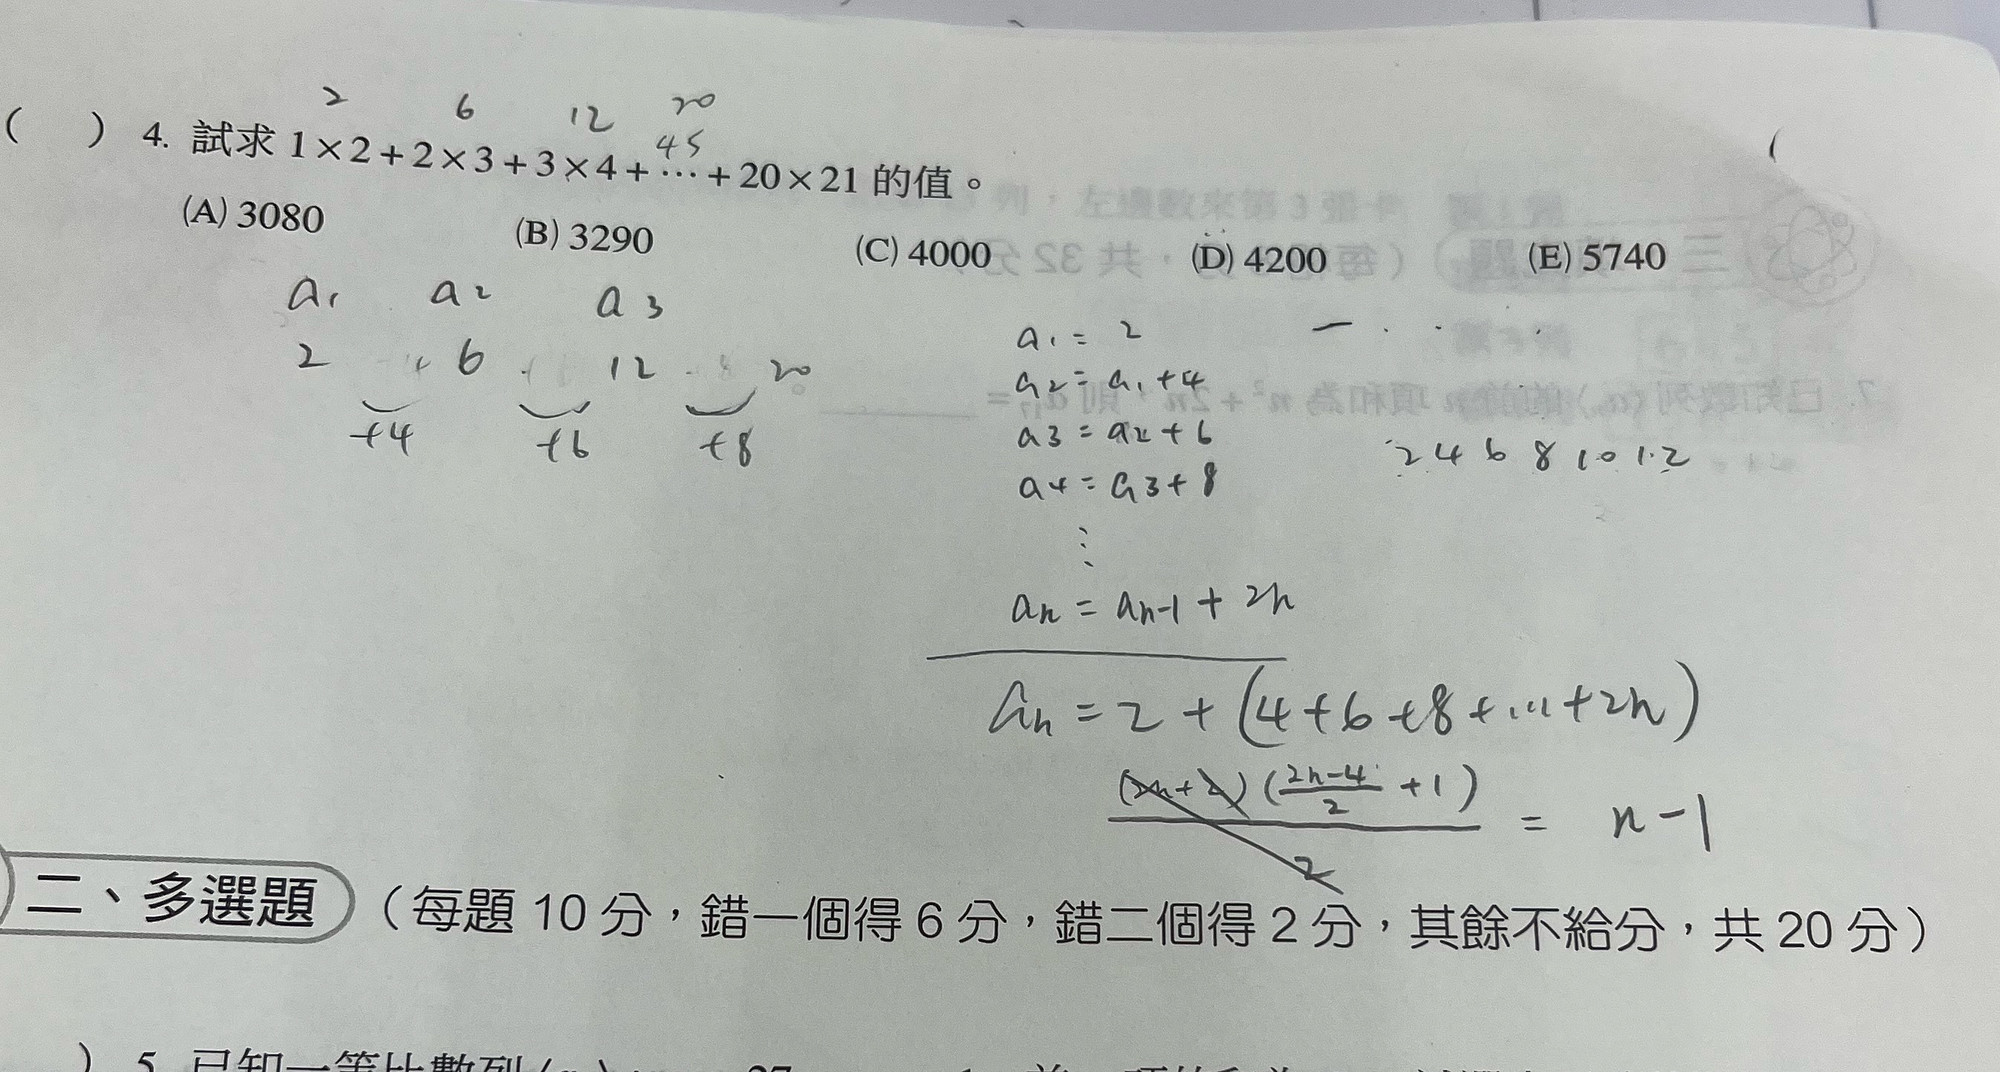 2 6 12 20
( ) 4. 試求 1×2+2×3+3×4+⋯+20×21 的值。
45
(A) 3080 (B) 3290 (C) 4000 (D) 4200 (E) 5740
a₁ a₂ a₃
2 6 12 20
+4 +6 +8
a₁ = 2
a₂ = a₁+4
a₃ = a₂+6
a₄ = a₃+8
⋮
aₙ = aₙ₋₁ + 2n
2 4 6 8 10 12
aₙ = 2 + (4+6+8+...+2n)
(2n+2)((2n-4)/2 +1) / 2 = n-1
二、多選題 (每題 10 分，錯一個得 6 分，錯二個得 2 分，其餘不給分，共 20 分)
) 5. 已知一等比數列